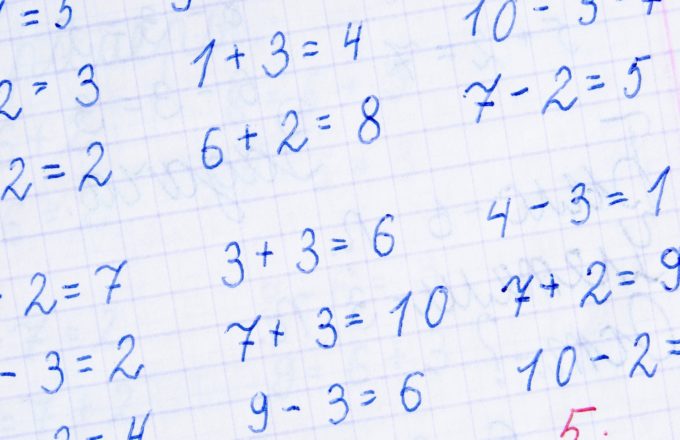 = 5
2 = 3
2 = 2
1 + 3 = 4
6 + 2 = 8
10 - 3
7 - 2 = 5
2 = 7
- 3 = 2
3 + 3 = 6
7 + 3 = 10
9 - 3 = 6
4 - 3 = 1
7 + 2 = 9
10 - 2 =
5.